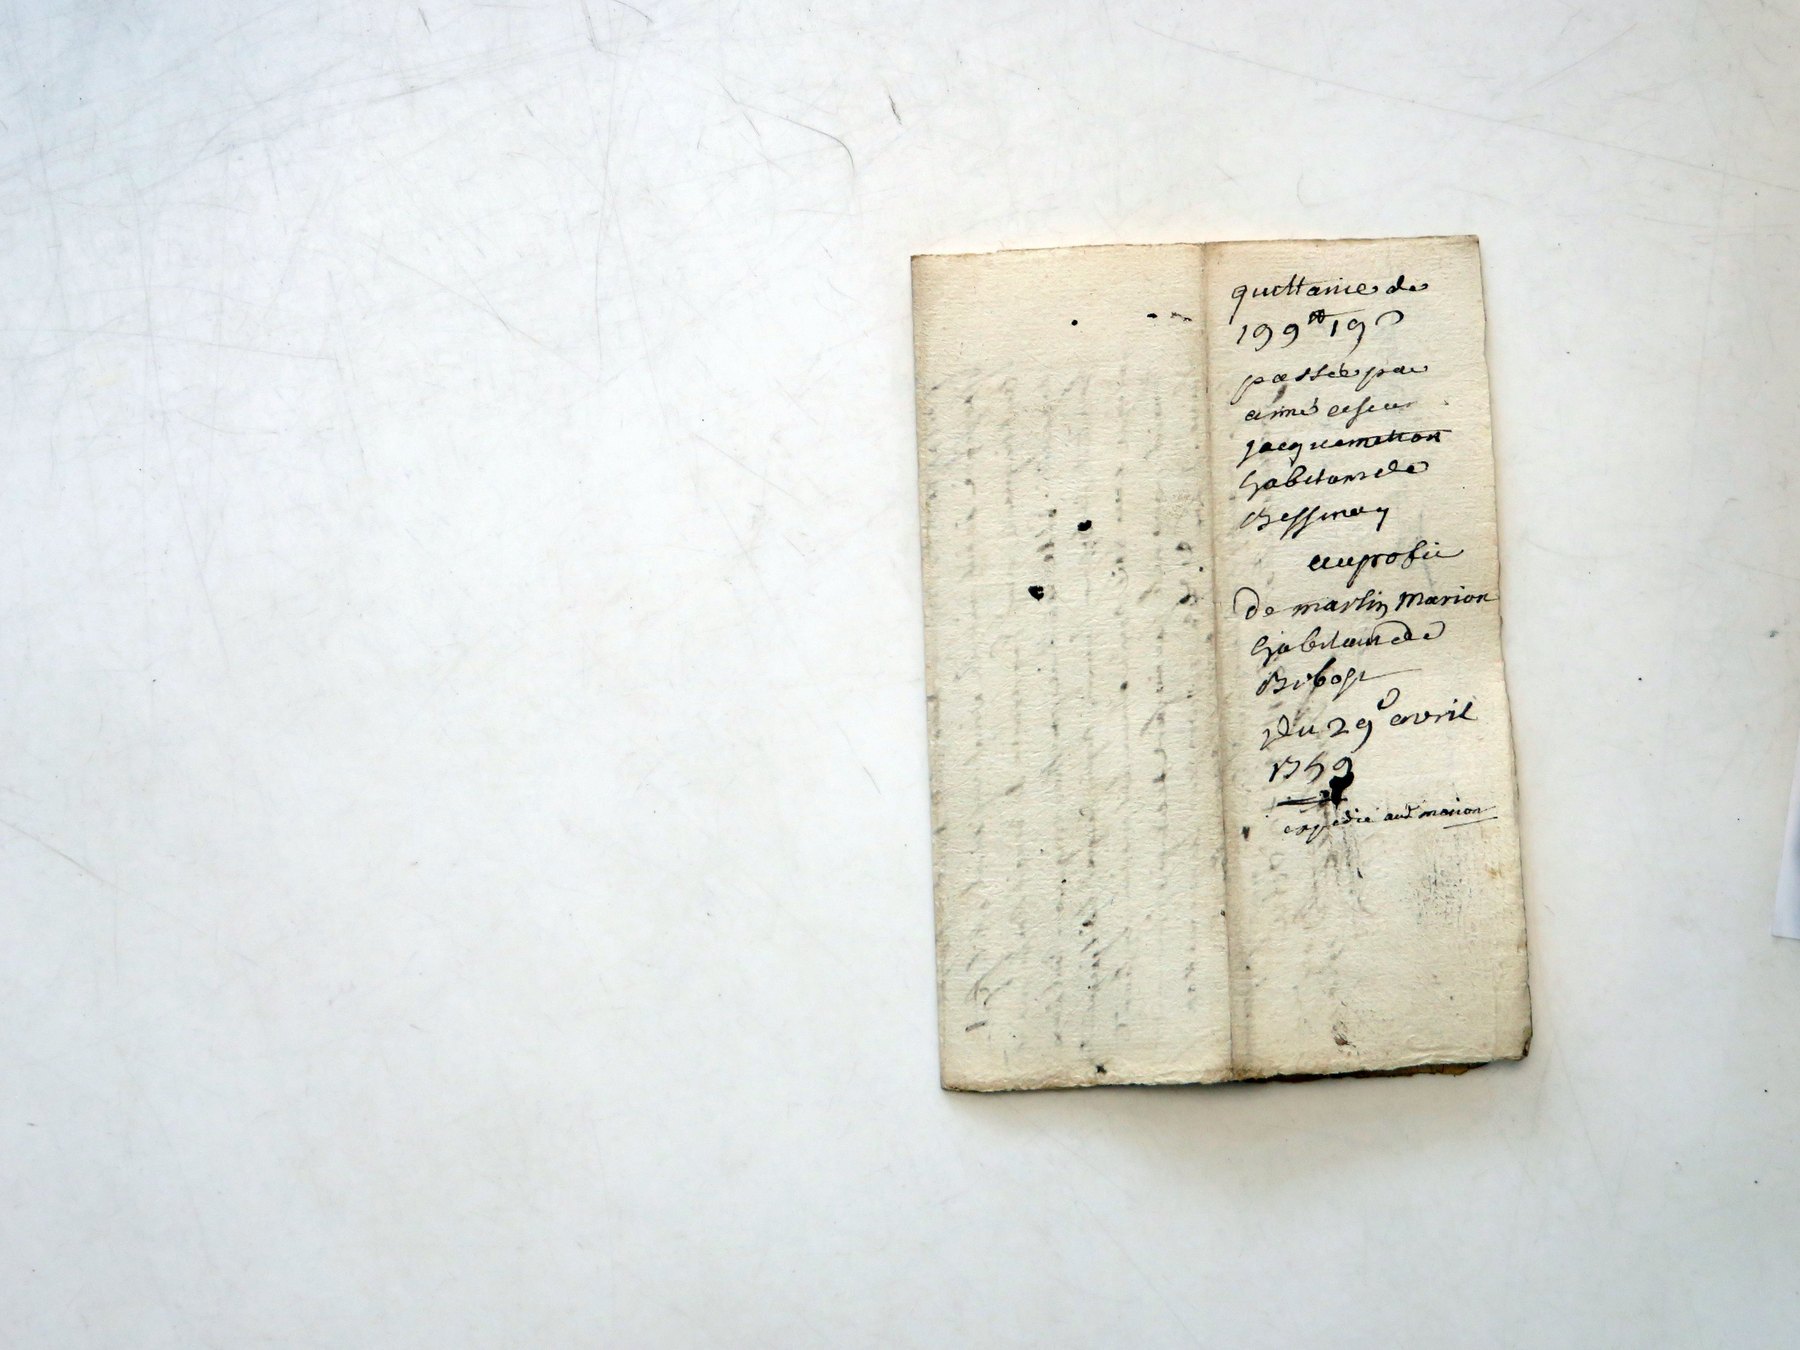 quittance de
199ᵗᵗ 19ˢ
passée par
aimé
jacquemetton
habitant de
Bessenay
au profit
de martin Marion
habitant de
Bibost
du 29ᵉ avril
1759
expédié aud. marion